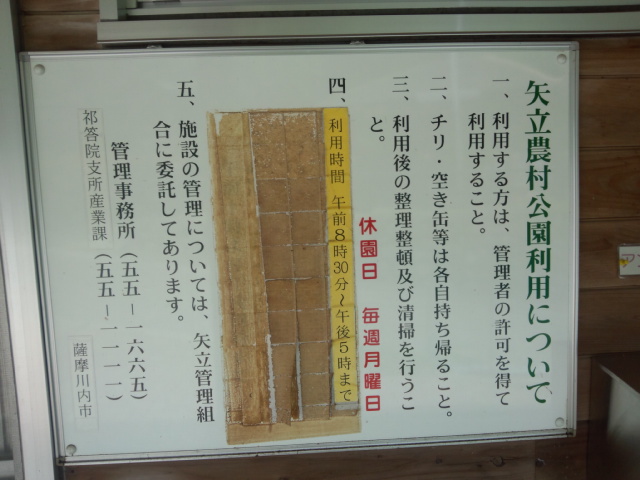 矢立農村公園利用について
一、利用する方は、管理者の許可を得て
利用すること。
二、チリ・空き缶等は各自持ち帰ること。
三、利用後の整理整頓及び清掃を行うこ
と。
休園日 毎週月曜日
四、
利用時間 午前8時30分～午後5時まで
五、施設の管理については、矢立管理組
合に委託してあります。
管理事務所(五五ー一六六五)
祁答院支所産業課(五五ー一一一一)
薩摩川内市